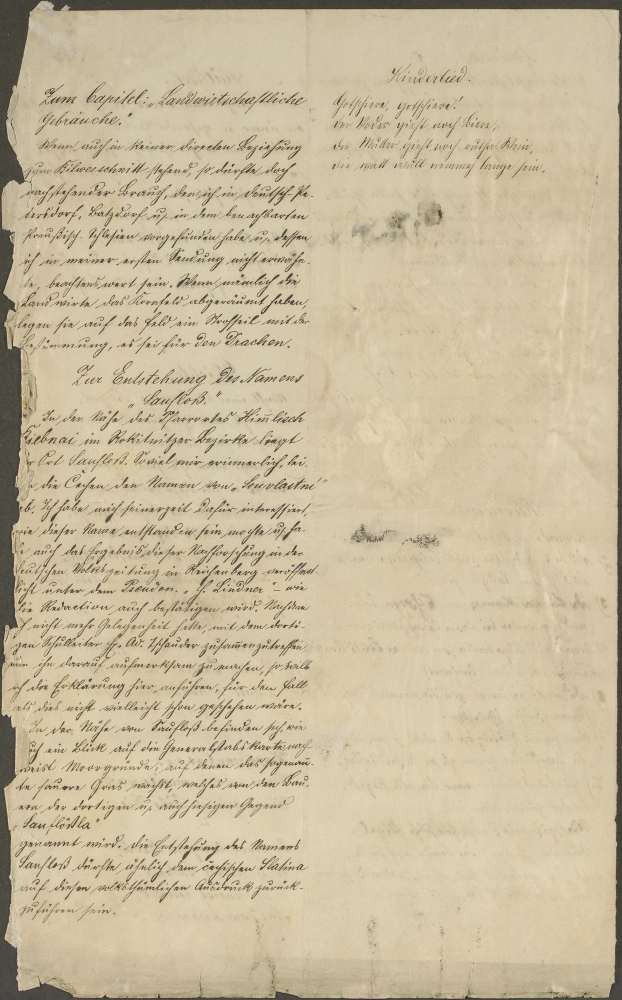 Zum Capitel: „Landwirtschaftliche
Gebräuche."
Wenn auch in keiner directen Beziehung
zum Bilwesschnitt stehend, so dürfte doch
nachstehender Brauch, den ich in Deutsch-Pe-
tersdorf, Batzdorf u. in dem benachbarten
Preußisch-Schlesien vorgefunden habe u. dessen
ich in meiner ersten Sendung nicht erwähn-
te, beachtenswert sein. Wenn nämlich die
Landwirte das Kornfeld abgeräumt haben,
legen sie auf das Feld ein Strohseil mit der
Bestimmung, es sei für den Drachen.
Zur Entstehung des Namens
„Saufloß."
In der Nähe des Pfarrortes Himlisch
Ribnai im Rokitnitzer Bezirke liegt
der Ort Saufloß. Soviel mir erinnerlich, lei-
die Cechen den Namen von „Souvlastní"
ab. Ich habe mich seinerzeit dafür interessiert,
wie dieser Name entstanden sein mochte u. ha-
be auch das Ergebnis dieser Nachforschung in der
Deutschen Volkszeitung in Reichenberg veröffent-
licht unter dem Pseudon. „H. Lindner" – wie
die Redaction auch bestätigen wird. Nachdem
ich nicht mehr Gelegenheit hatte, mit dem dorti-
gen Schulleiter H. Ad. Tschauder zusammenzutreffen
um ihn darauf aufmerksam zu machen, so wollte
ich die Erklärung hier anführen, für den Fall
als dies nicht vielleicht schon geschehen wäre.
In der Nähe von Saufloß befinden sich, wie
auch ein Blick auf die Generalstabskarte nach-
weist Moorgründe, auf denen das sogenann-
te sauere Gras wächst, welches von den Bau-
ern der dortigen u. auch hiesigen Gegend
„Sauflößla"
genannt wird. Die Entstehung des Namens
Saufloß dürfte ähnlich dem cechischen Slatina
auf diesen volksthümlichen Ausdruck zurück-
zuführen sein.
Kinderlied.
Hotschiere, hotschiere!
Der Voder giht noch Biere,
Die Mutter giht noch Wein,
Die watt wull nimmej lange sein.